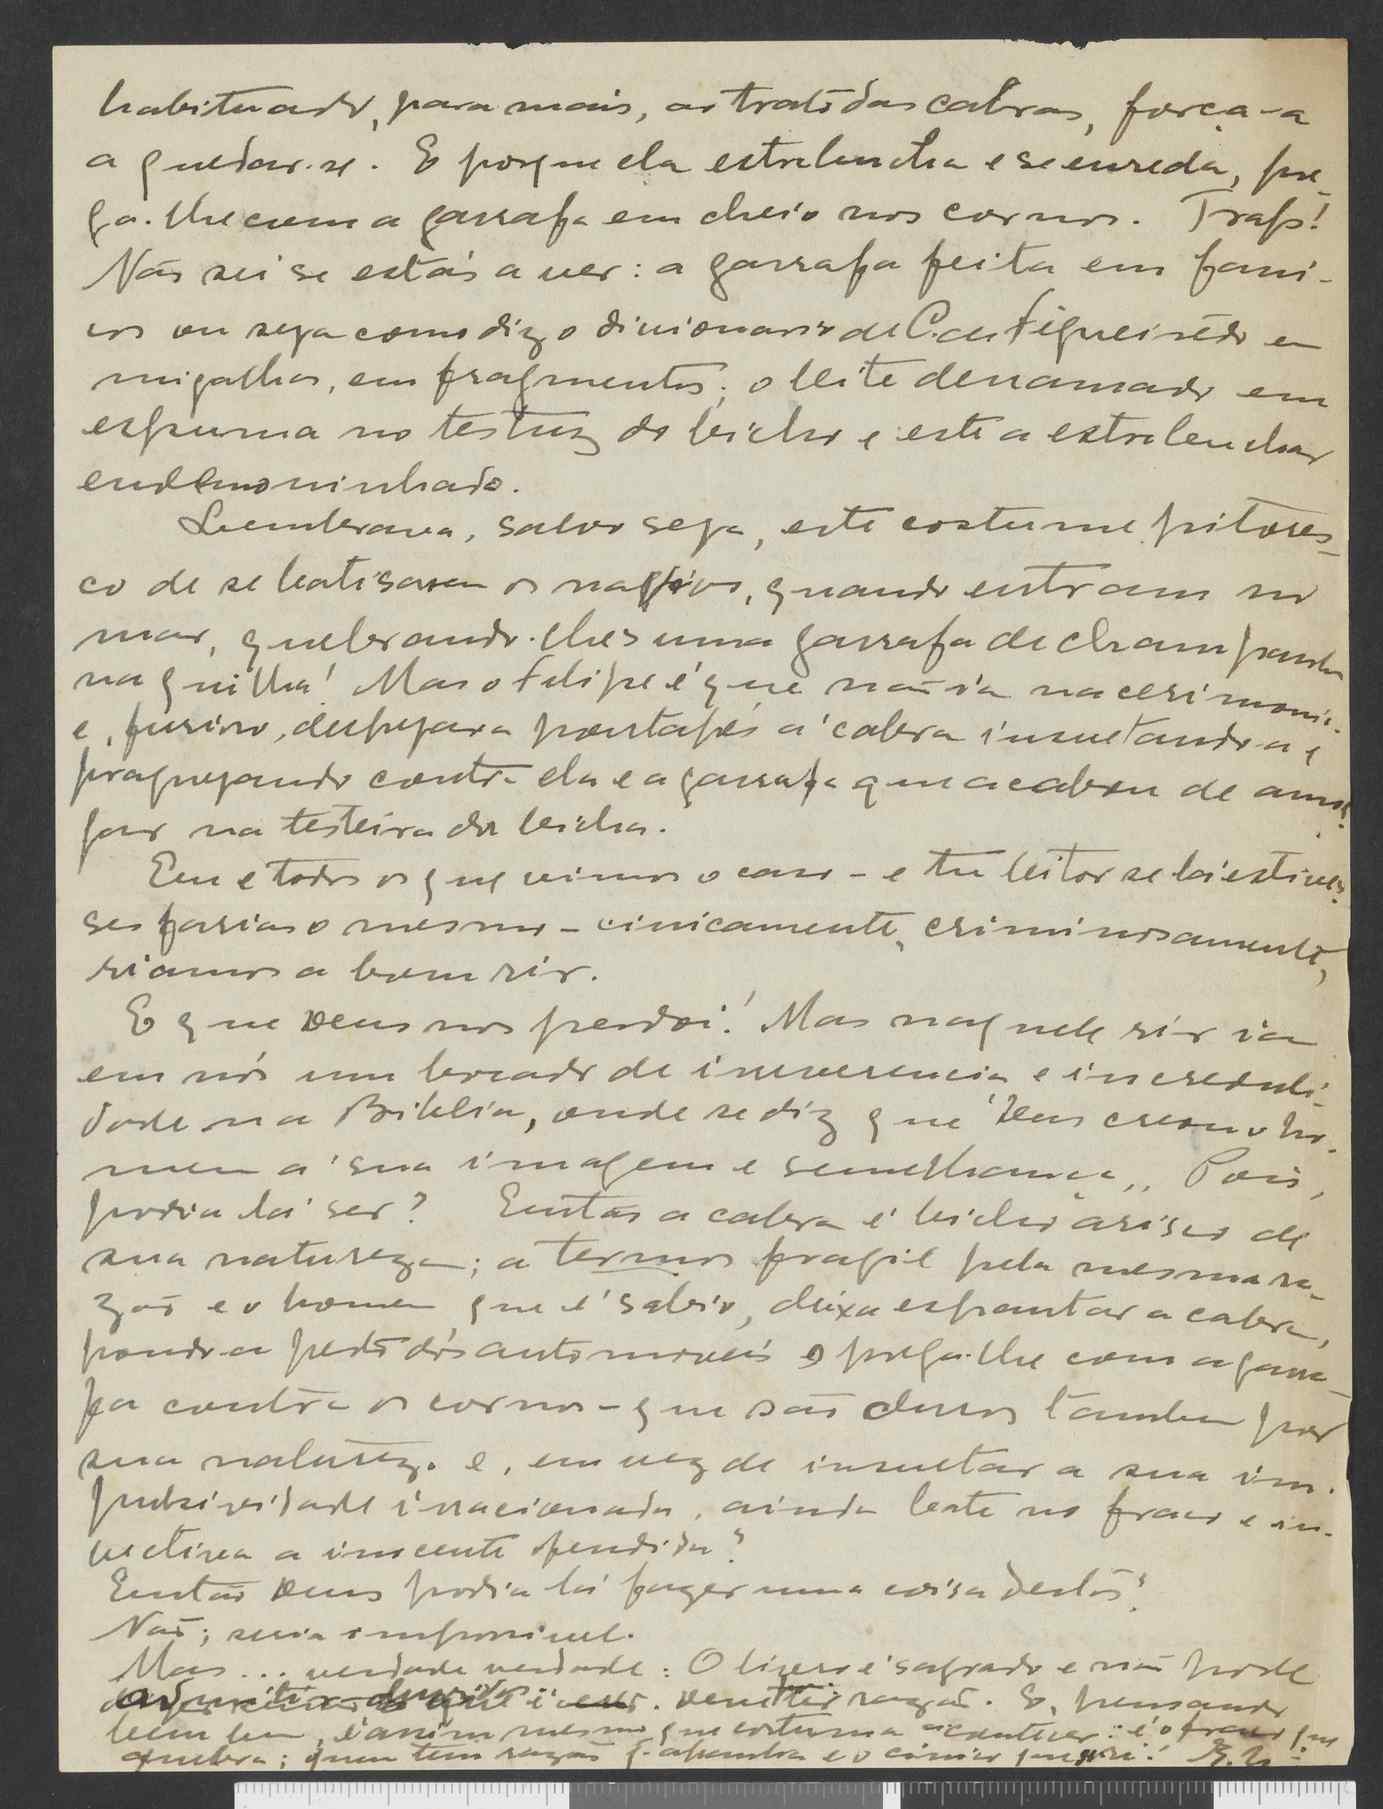 habituado, para mais, ao trato das cabras, força-a
a quedar-se. E porque ela estrebucha e se enreda, pre-
ga-lhe com a garrafa em cheio nos cornos. Trafs!
Não sei se estás a ver: a garrafa feita em fani-
cos ou seja como diz o dicionario de C. de Figueirêdo em
migalhas, em fragmentos; o leite derramado em
espuma no testuz do bicho e este a estrebuchar
endemoninhado.
Lembrava, salvo seja, este costume pitores-
co de se batisarem os navios, quando entram no
mar, quebrando-lhes uma garrafa de champanhe
na quilha! Mas o Filipe é que não ia na cerimonia
e, furioso, despejara pontapés á cabra insultando-a e
praguejando contra ela e a garrafa que acabou de amol-
gar na testeira da bicha.
Eu e todos os que vimos o caso - e tu leitor se lá estives-
ses farias o mesmo - cinicamente, criminosamente,
riamos a bom rir.
E que Deus nos perdoi! Mas naquele rir ia
em nós um bocado de irreverencia e increduli-
dade na Biblia, onde se diz que "Deus creou o ho-
mem á sua imagem e semelhança". Pois,
podia lá ser? Então a cabra é bicho arisco de
sua natureza; a termos fragil pela mesma ra-
zão e o homem, que é sabio, deixa espantar a cabra,
pondo-a perto dos automoveis e prega-lhe com a garra-
fa contra os cornos - que são duros tambem por
sua natureza e, em vez de insultar a sua im-
pulsividade irracionada, ainda bate no fraco e in-
vectiva a inocente ofendida?
Então Deus podia lá fazer uma coisa destas?
Não; seria impossivel.
Mas... verdade verdade: O livro é sagrado e não pode
admitir duvidas. Deve ter razão. E, pensando
bem bem, é assim mesmo que costuma acontecer: é o fraco que
quebra; quem tem razão q apanha e o cinico que ri!